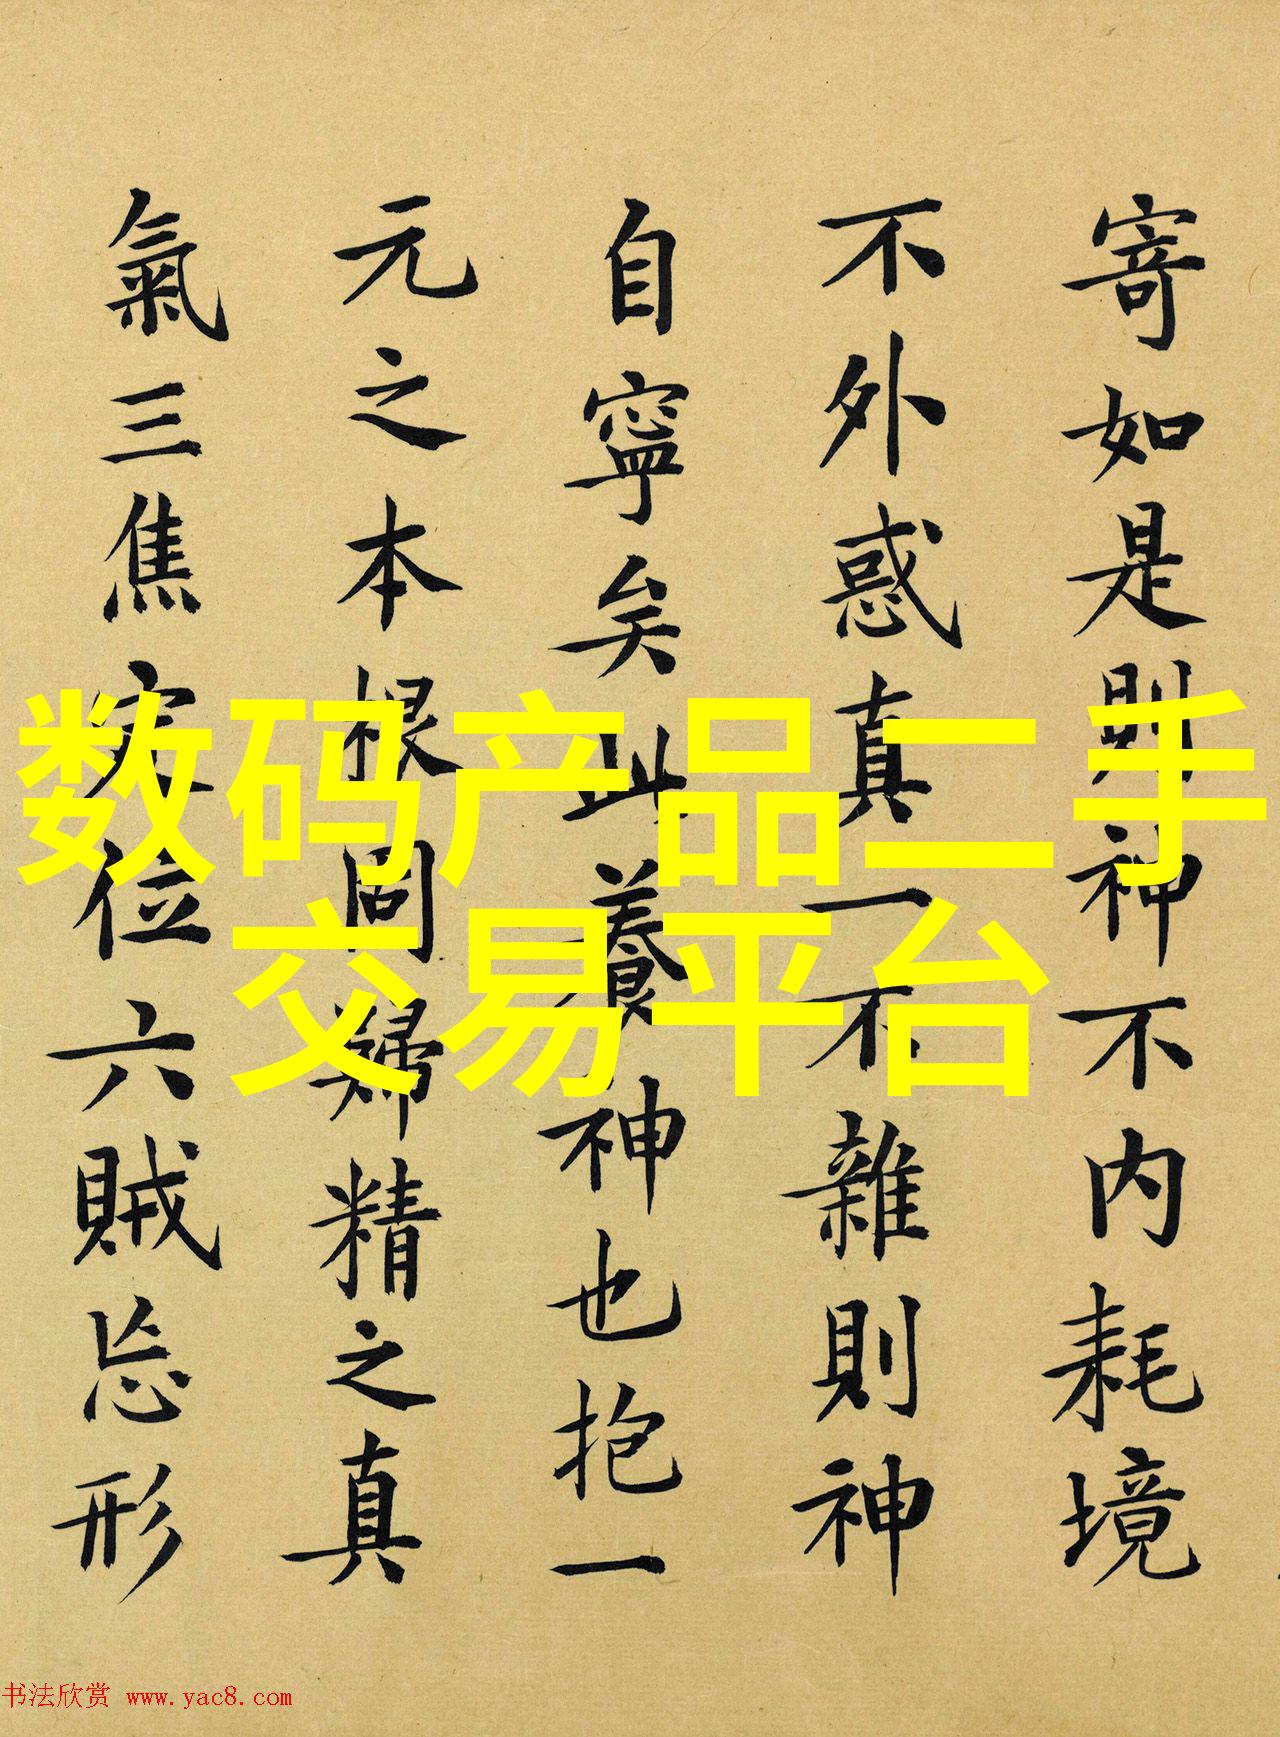 寄如是則神不内耗境
不外惑真一不雜則神
自寧矣此養神也抱一
元之本根固歸精之真
氣三焦定位六賊忘形
数码产品二手
交易平台
书法欣赏 www.yac8.com